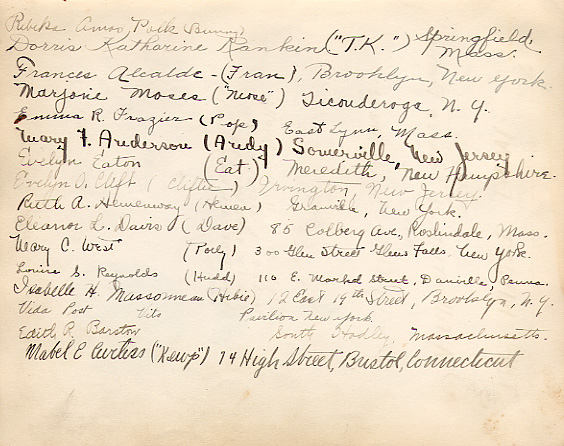 Amos, Polk (Bunny)
Dorris Katharine Rankin ("T.K.") Springfield, Mass.
Frances Alcalde - (Fran), Brooklyn, New York.
Marjorie Moses ("Mose") Ticonderoga, N.Y.
Emma R. Frazier (Pop) East Lynn, Mass.
Mary F. Anderson (Andy) Somerville, New Jersey
Evelyn Eaton (Eat) Meredith, New Hampshire.
Evelyn O. Clift (Cliftie) Irvington, New Jersey.
Ruth A. Hemenway (Hemen) Granville, New York.
Eleanor L. Davis (Dave) 85 Colberg Ave., Roslindale, Mass.
Mary C. West 300 Glen Street Glens Falls, New York.
Louise S. Reynolds (Hudd) 110 E. Market Street, Danville, Penna.
Isabelle H. Massonneau (Hibie) 12 East 19th Street, Brooklyn, N.Y.
Vida Post Vits Pavilion New York.
Edith P. Barstow South Hadley, Massachusetts.
Mabel E Curtiss ("Kewp") 74 High Street, Bristol, Connecticut